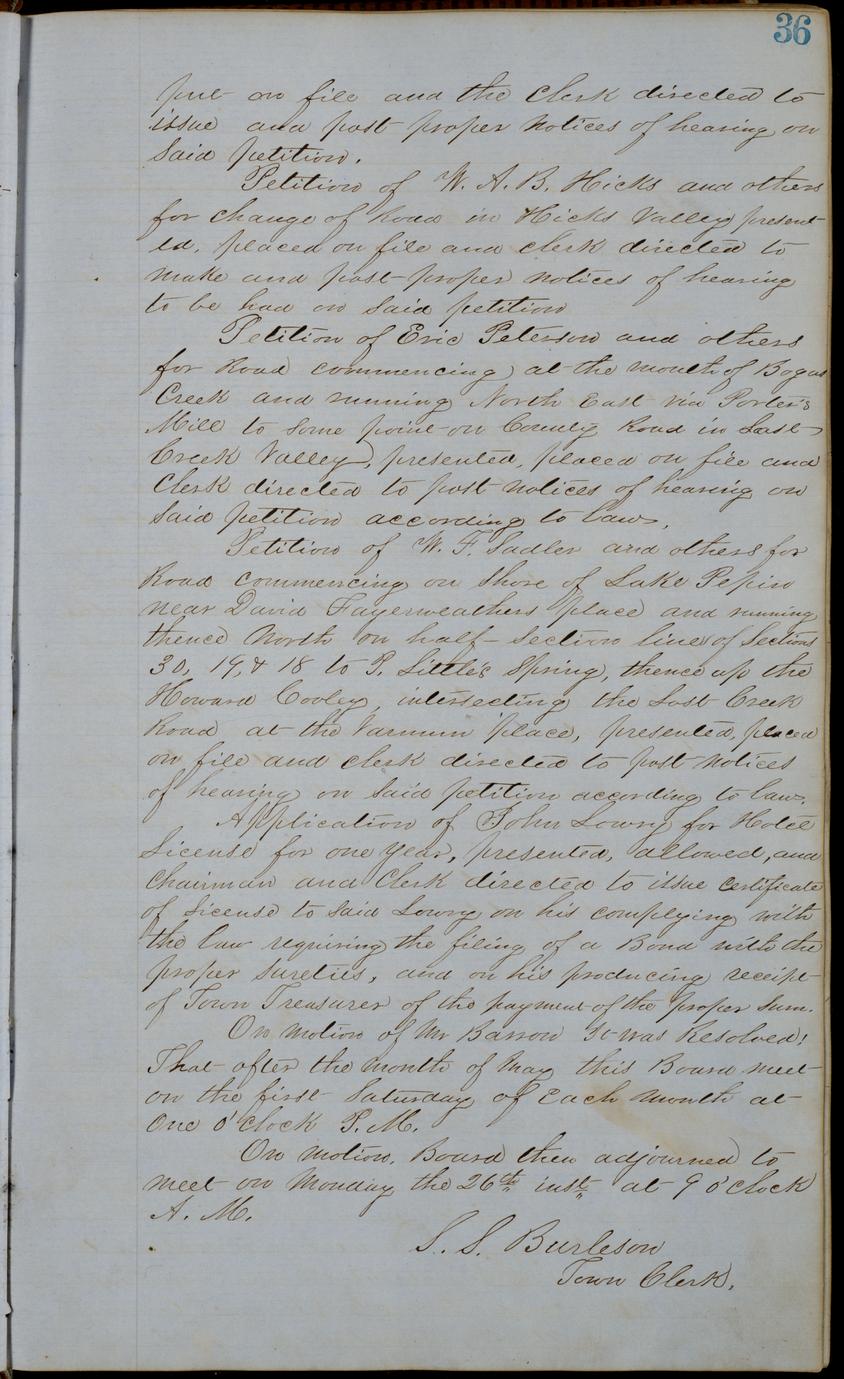 36
put on file and the Clerk directed to
issue and post proper notices of hearing on
said petition.
Petition of W. A. B. Hicks and others
for change of Road in Hicks Valley present-
ed, placed on file and clerk directed to
make and post proper notices of hearing
to be had on said petition
Petition of Eric Peterson and others
for Road commencing at the mouth of Bogus
Creek and running North East via Porter's
Mill to some point on County Road in Lost
Creek Valley, presented, placed on file and
Clerk directed to post notices of hearing on
said petition according to law.
Petition of W. F. Sadler and others for
Road commencing on Shore of Lake Pepin
near David Fayerweathers place and running
thence North on half-section line of Sections
30, 19, & 18 to P. Little's Spring, thence up the
Howard Cooley, intersecting the Lost Creek
Road at the Varnum place, presented, placed
on file and clerk directed to post notices
of hearing on said petition according to law.
Application of John Lowry for Hotel
License for one year, presented, allowed, and
Chairman and Clerk directed to issue certificate
of License to said Lowry on his complying with
the law requiring the filing of a Bond with the
proper sureties, and on his producing receipt
of Town Treasurer of the payment of the proper sum.
On motion of Mr Barrow It was Resolved!
That after the month of May this Board meet
on the first Saturday of Each month at
One o'clock P. M.
On motion, Board then adjourned to
meet on Monday the 26th inst. at 9 o'clock
A. M.
S. S. Burleson
Town Clerk.